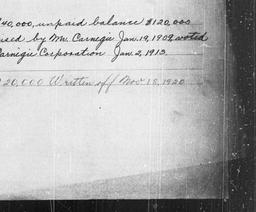 40,000, unpaid balance $120,000
by Mr. Carnegie Jan. 19, 1909 voted
Carnegie Corporation Jan 2, 1913.
20,000 Written off Nov 18, 1920